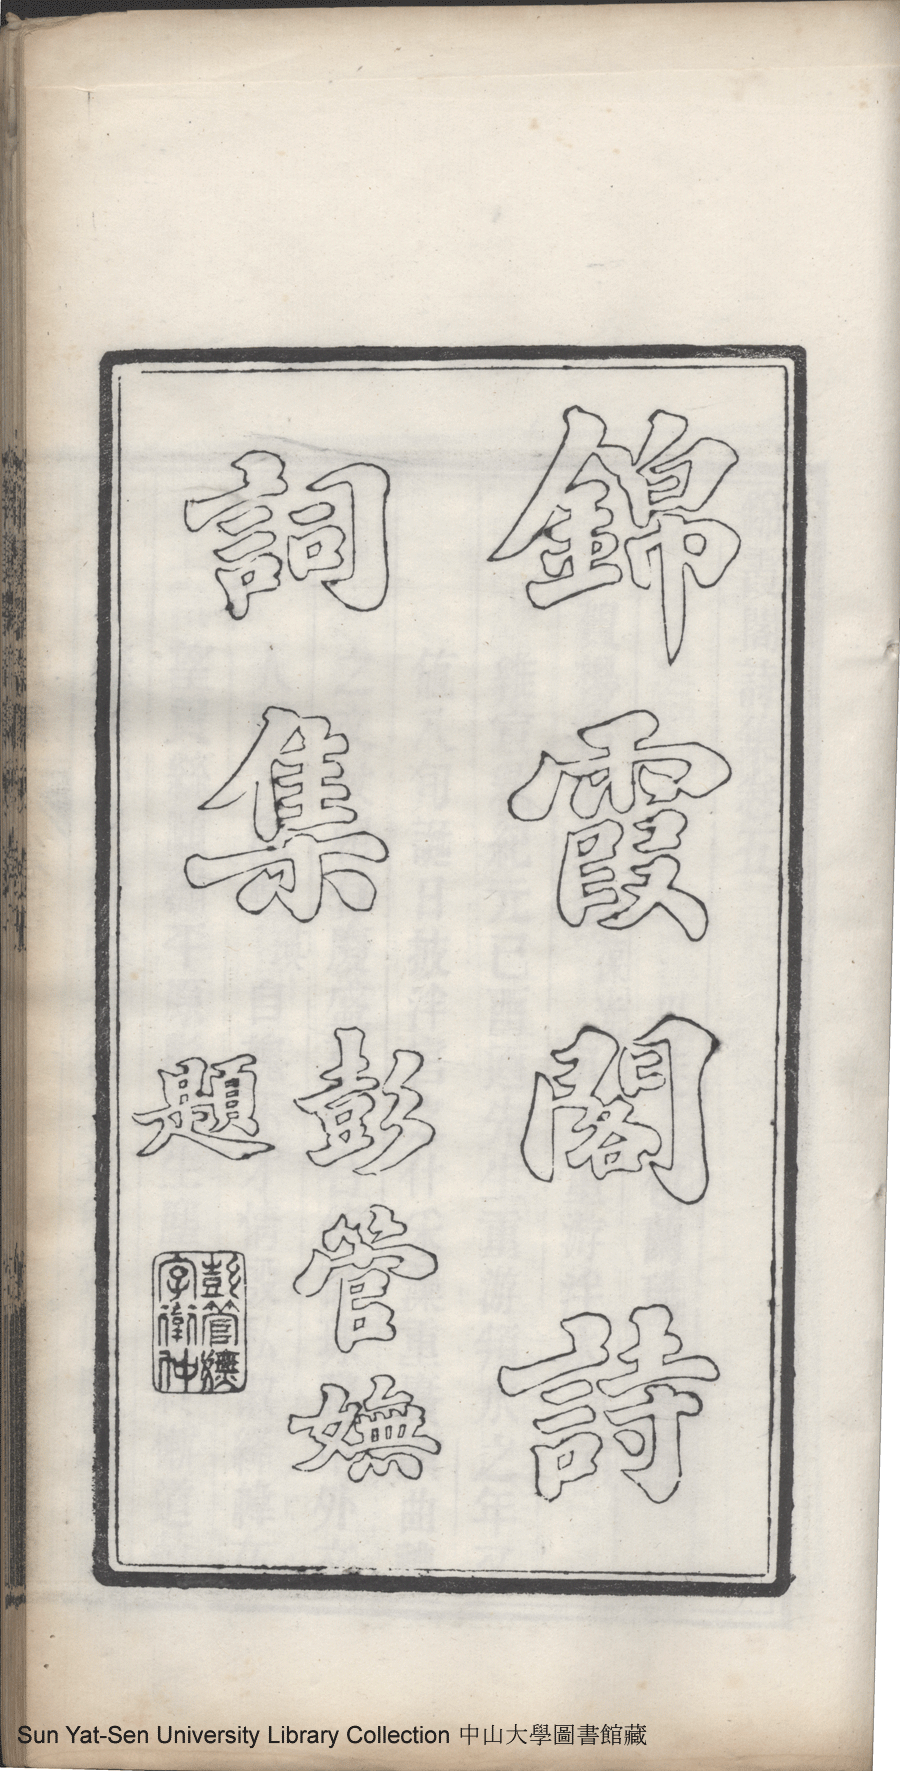 錦霞閣詩
詞集
彭管嫵
題
彭管嫵
字衛仲
Sun Yat-Sen University Library Collection 中山大學圖書館藏